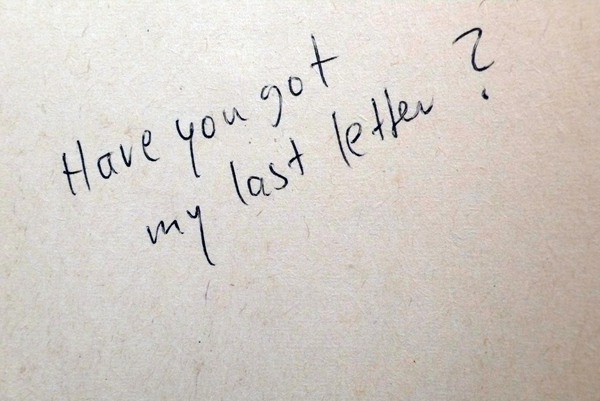 Have you got
my last letter ?